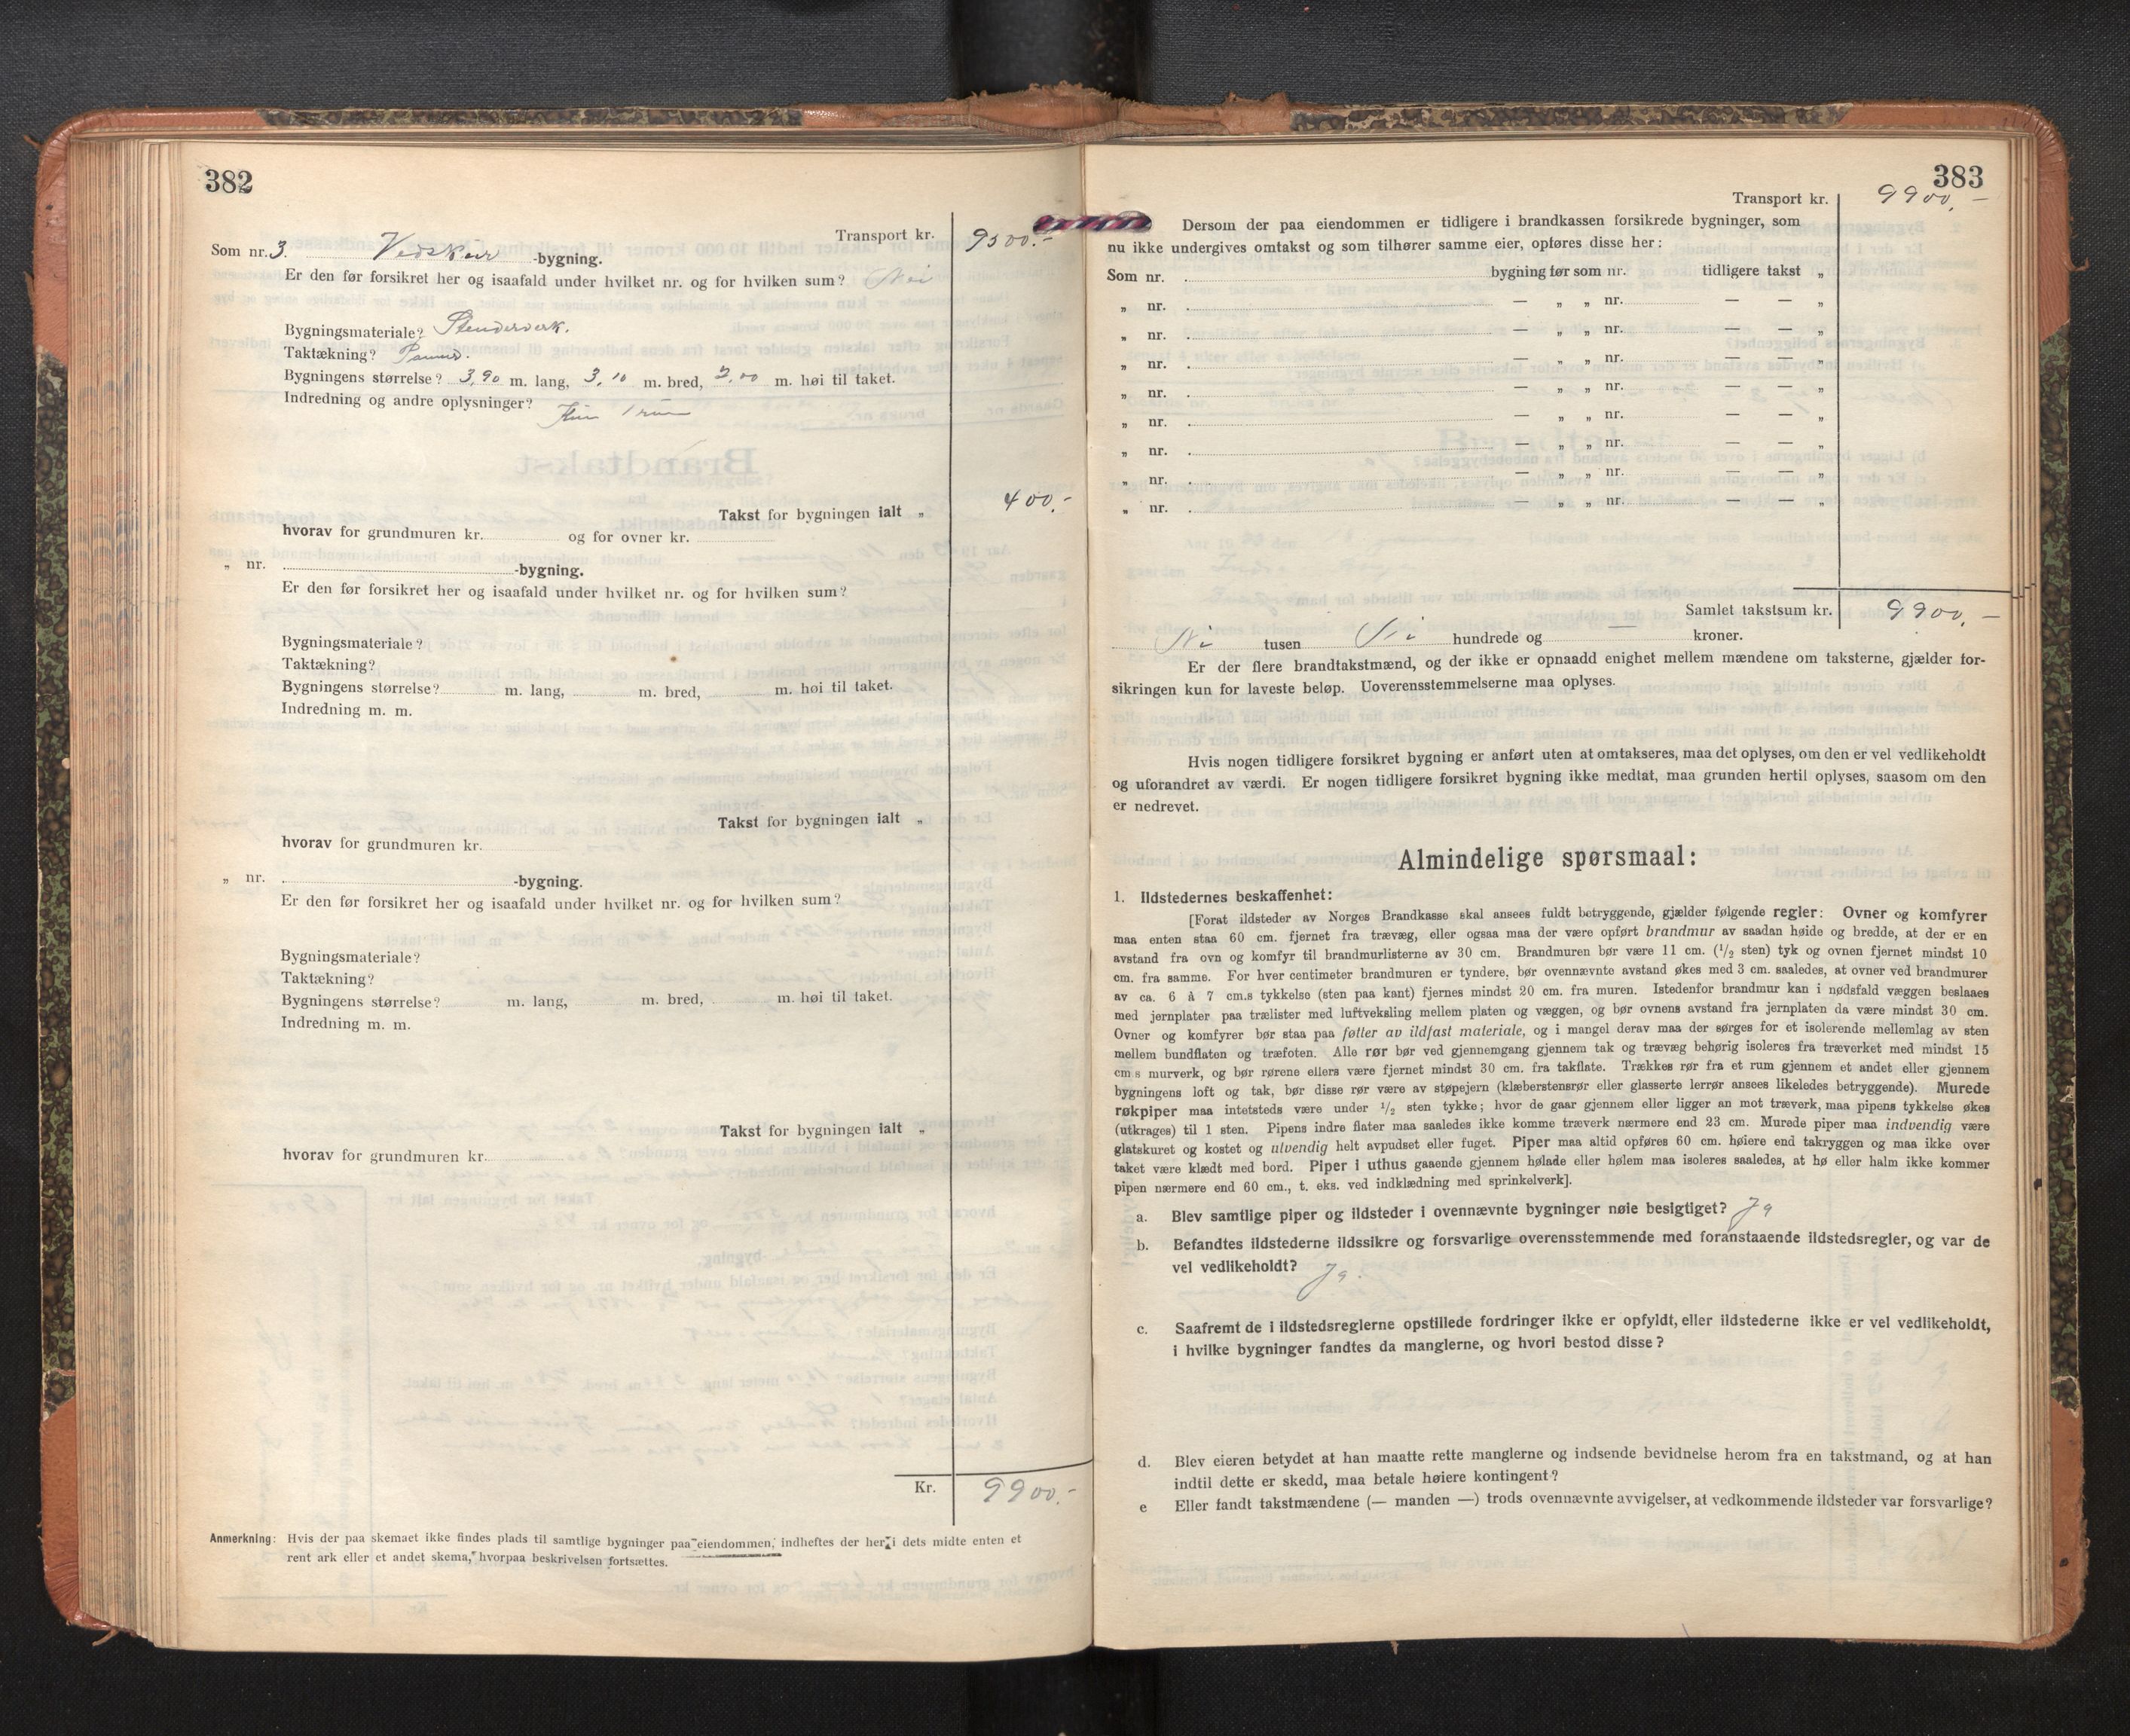 382
Transport kr. 9500.-
Som nr. 3. Vedskur -bygning.
Er den før forsikret her og isaafald under hvilket nr. og for hvilken sum? Nei
Bygningsmateriale? Stenderverk.
Taktækning? Panner.
Bygningens størrelse? 3,90 m. lang, 3,10 m. bred, 2,00 m. høi til taket.
Indredning og andre oplysninger? Kun 1 rum
Takst for bygningen ialt „ 400.-
hvorav for grundmuren kr. og for ovner kr.
„ nr. -bygning.
Er den før forsikret her og isaafald under hvilket nr. og for hvilken sum?
Bygningsmateriale?
Taktækning?
Bygningens størrelse? m. lang, m. bred, m. høi til taket.
Indredning m. m.
Takst for bygningen ialt „
hvorav for grundmuren kr.
„ nr. -bygning.
Er den før forsikret her og isaafald under hvilket nr. og for hvilken sum?
Bygningsmateriale?
Taktækning?
Bygningens størrelse? m. lang, m. bred, m. høi til taket.
Indredning m. m.
Takst for bygningen ialt „
hvorav for grundmuren kr.
Kr. 9900.-
Anmerkning: Hvis der paa skemaet ikke findes plads til samtlige bygninger paa eiendommen, indheftes der her i dets midte enten et
rent ark eller et andet skema, hvorpaa beskrivelsen fortsættes.
383
Transport kr. 9900.-
Dersom der paa eiendommen er tidligere i brandkassen forsikrede bygninger, som
nu ikke undergives omtakst og som tilhører samme eier, opføres disse her:
Som nr. bygning før som nr. tidligere takst „
„ nr. — „ „ nr. — — „
„ nr. — „ „ nr. — — „
„ nr. — „ „ nr. — — „
„ nr. — „ „ nr. — — „
„ nr. — „ „ nr. — — „
„ nr. — „ „ nr. — — „
„ nr. — „ „ nr. — — „
„ nr. — „ „ nr. — — „
Samlet takstsum kr. 9900.-
Ni tusen Ni hundrede og — kroner.
Er der flere brandtakstmænd, og der ikke er opnaadd enighet mellem mændene om taksterne, gjælder for-
sikringen kun for laveste beløp. Uoverensstemmelserne maa oplyses.
Hvis nogen tidligere forsikret bygning er anført uten at omtakseres, maa det oplyses, om den er vel vedlikeholdt
og uforandret av værdi. Er nogen tidligere forsikret bygning ikke medtat, maa grunden hertil oplyses, saasom om den
er nedrevet.
Almindelige spørsmaal:
1. Ildstedernes beskaffenhet:
[Forat ildsteder av Norges Brandkasse skal ansees fuldt betryggende, gjælder følgende regler: Ovner og komfyrer
maa enten staa 60 cm. fjernet fra trævæg, eller ogsaa maa der være opført brandmur av saadan høide og bredde, at der er en
avstand fra ovn og komfyr til brandmurlisterne av 30 cm. Brandmuren bør være 11 cm. (1/2 sten) tyk og ovnen fjernet mindst 10
cm. fra samme. For hver centimeter brandmuren er tyndere, bør ovennævnte avstand økes med 3 cm. saaledes, at ovner ved brandmurer
av ca. 6 à 7 cm.s tykkelse (sten paa kant) fjernes mindst 20 cm. fra muren. Istedenfor brandmur kan i nødsfald væggen beslaaes
med jernplater paa trælister med luftveksling mellem platen og væggen, og bør ovnens avstand fra jernplaten da være mindst 30 cm.
Ovner og komfyrer bør staa paa føtter av ildfast materiale, og i mangel derav maa der sørges for et isolerende mellemlag av sten
mellem bundflaten og træfoten. Alle rør bør ved gjennemgang gjennem tak og trævæg behørig isoleres fra træverket med mindst 15
cm.s murverk, og bør rørene ellers være fjernet mindst 30 cm. fra takflate. Trækkes rør fra et rum gjennem et andet eller gjennem
bygningens loft og tak, bør disse rør være av støpejern (klæberstensrør eller glasserte lerrør ansees likeledes betryggende). Murede
røkpiper maa intetsteds være under 1/2 sten tykke; hvor de gaar gjennem eller ligger an mot træverk, maa pipens tykkelse økes
(utkrages) til 1 sten. Pipens indre flater maa saaledes ikke komme træverk nærmere end 23 cm. Murede piper maa indvendig være
glatskuret og kostet og utvendig helt avpudset eller fuget. Piper maa altid opføres 60 cm. høiere end takryggen og maa ikke over
taket være klædt med bord. Piper i uthus gaaende gjennem hølade eller hølem maa isoleres saaledes, at hø eller halm ikke kommer
pipen nærmere end 60 cm., t. eks. ved indklædning med sprinkelverk].
a. Blev samtlige piper og ildsteder i ovennævnte bygninger nøie besigtiget? Ja
b. Befandtes ildstederne ildssikre og forsvarlige overensstemmende med foranstaaende ildstedsregler, og var de
vel vedlikeholdt? Ja.
c. Saafremt de i ildstedsreglerne opstillede fordringer ikke er opfyldt, eller ildstederne ikke er vel vedlikeholdt,
i hvilke bygninger fandtes da manglerne, og hvori bestod disse?
d. Blev eieren betydet at han maatte rette manglerne og indsende bevidnelse herom fra en takstmand, og at han
indtil dette er skedd, maa betale høiere kontingent?
e Eller fandt takstmændene (— manden —) trods ovennævnte avvigelser, at vedkommende ildsteder var forsvarlige?